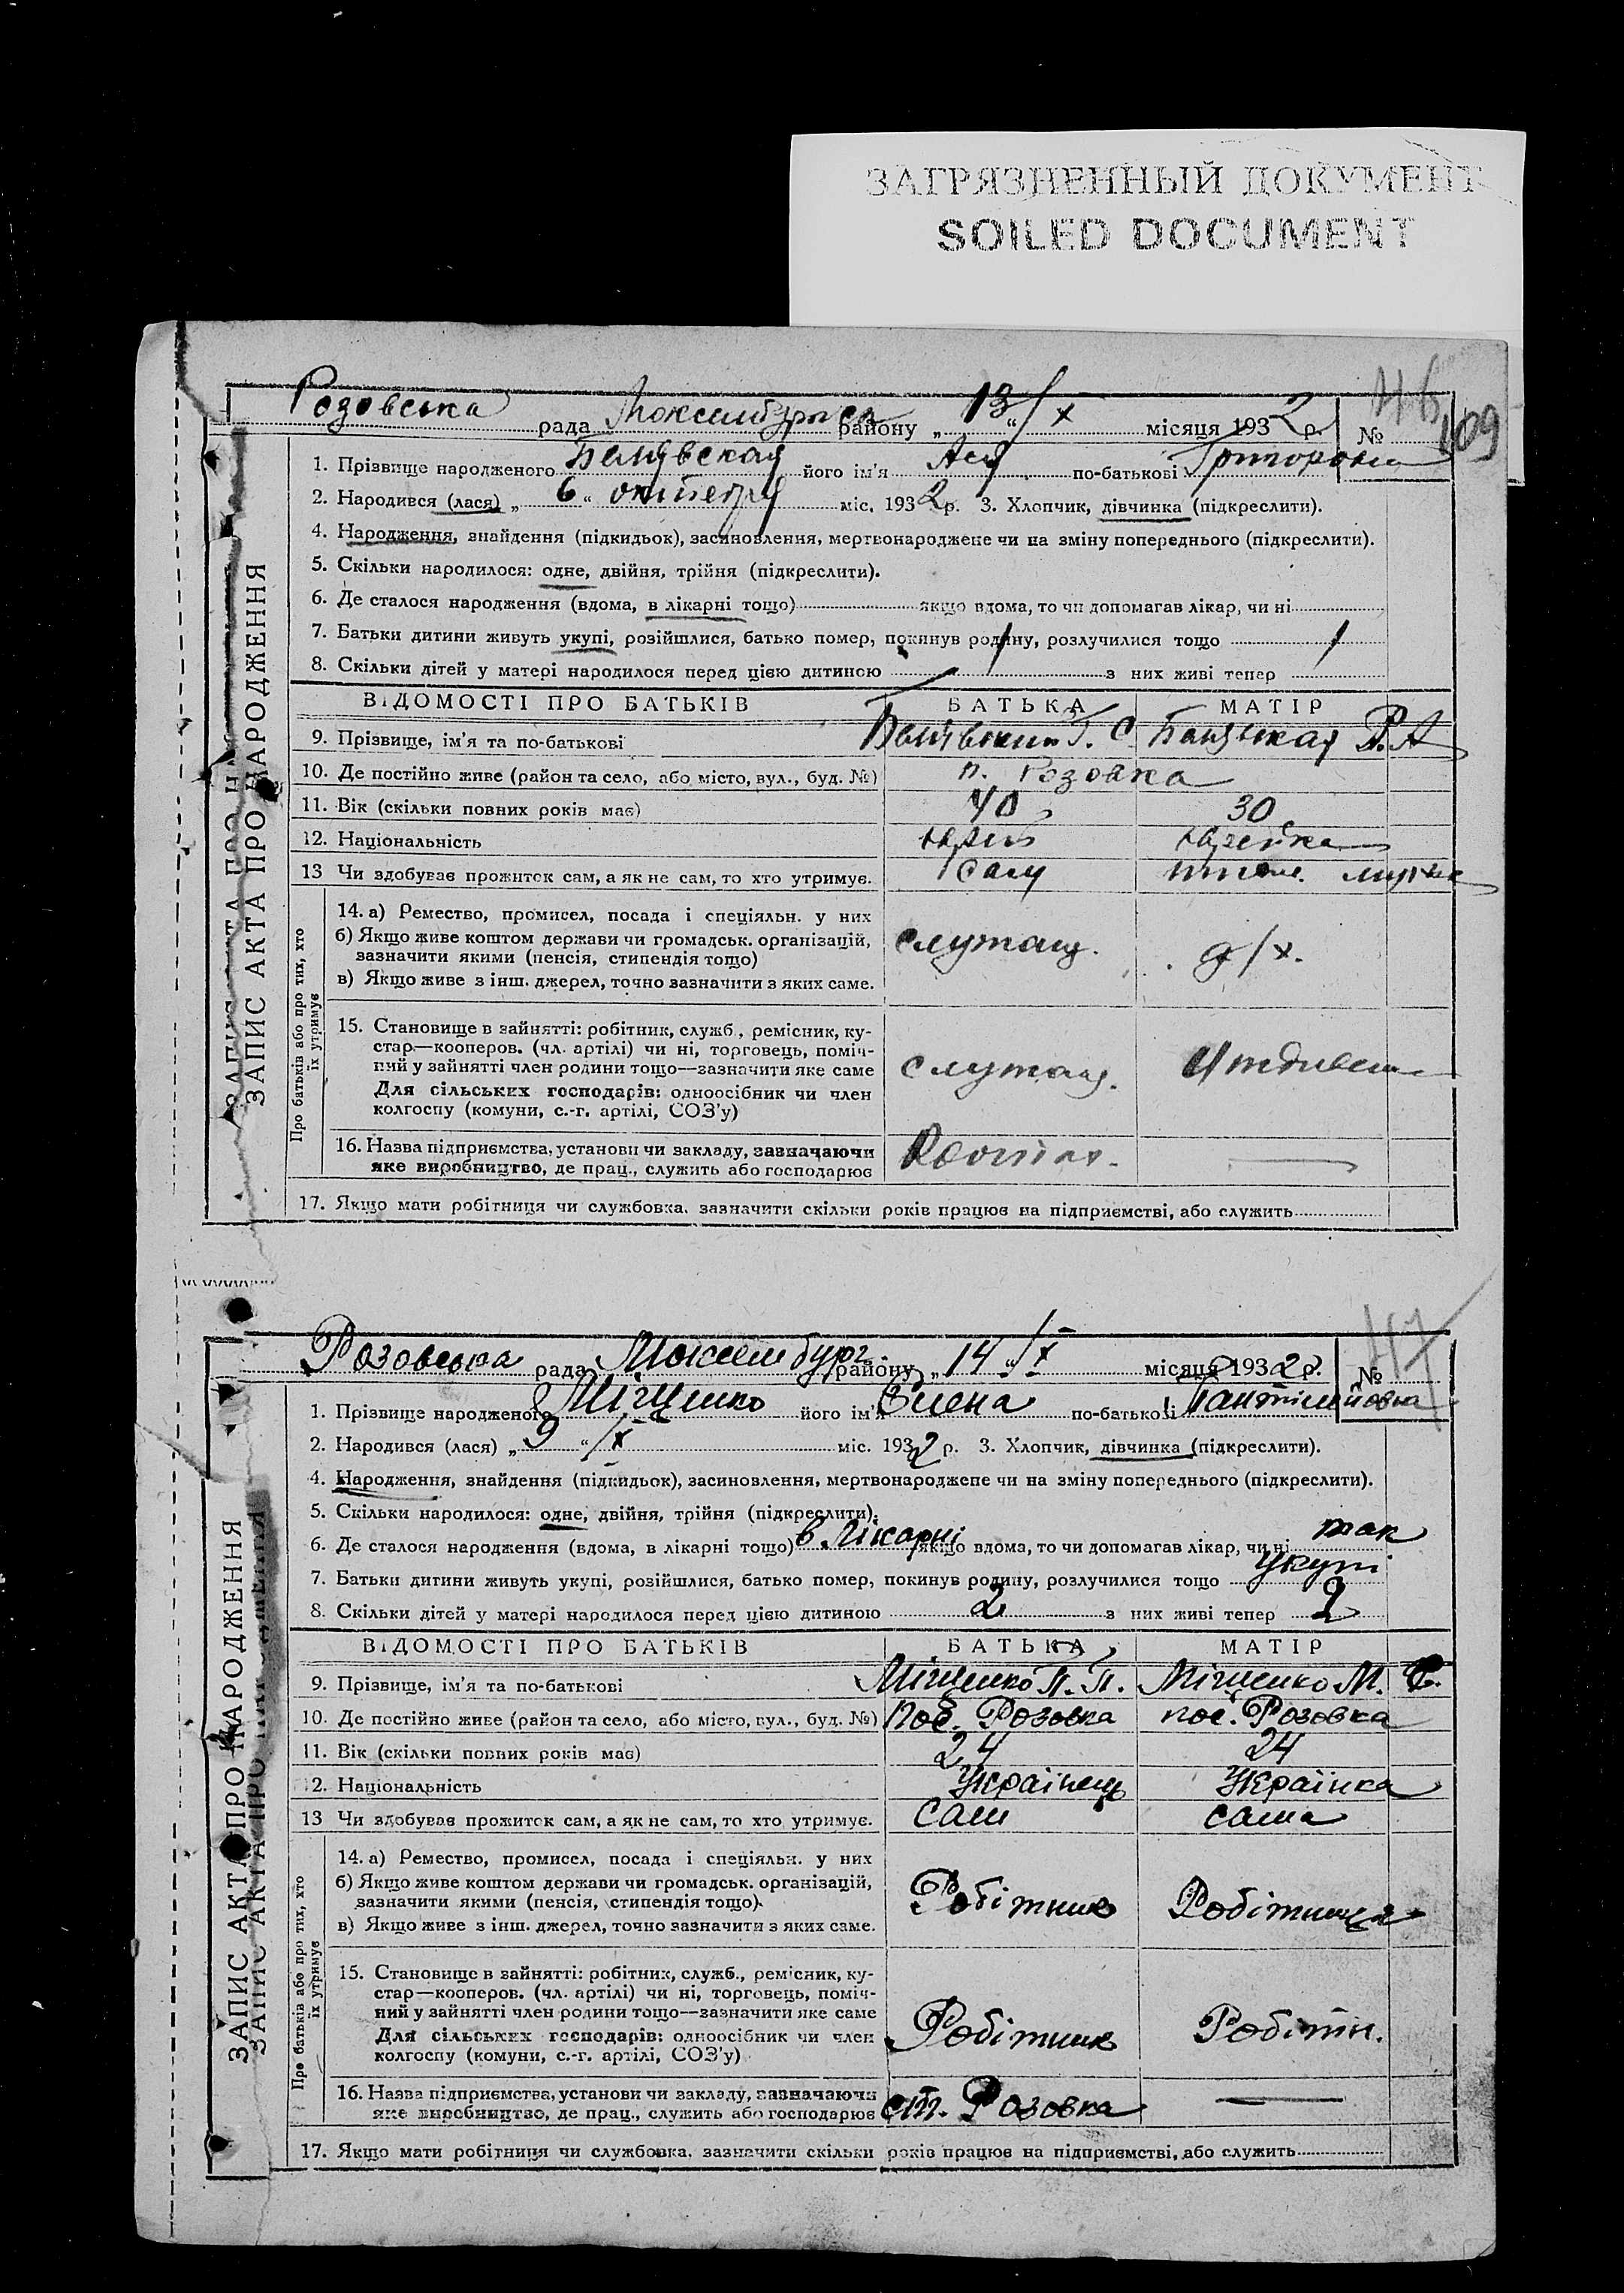 ЗАГРЯЗНЕННЫЙ ДОКУМЕНТ
SOILED DOCUMENT
109
46
Розовська рада району „13/X“ місяця 1932 р. №
1. Прізвище народженого його ім'я Ася по-батькові
2. Народився (лася) „6“ октября міс. 1932 р. 3. Хлопчик, дівчинка (підкреслити).
4. Народження, знайдення (підкидьок), засиновлення, мертвонароджене чи на зміну попереднього (підкреслити).
5. Скільки народилося: одне, двійня, трійня (підкреслити).
6. Де сталося народження (вдома, в лікарні тощо) якщо вдома, то чи допомагав лікар, чи ні
7. Батьки дитини живуть укупі, розійшлися, батько помер, покинув родину, розлучилися тощо
8. Скільки дітей у матері народилося перед цією дитиною 1 з них живі тепер 1
ВІДОМОСТІ ПРО БАТЬКІВ БАТЬКА МАТІР
9. Прізвище, ім'я та по-батькові Г. С. Р. А
10. Де постійно живе (район та село, або місто, вул., буд. №) п. Розовка
11. Вік (скільки повних років має) 40 30
12. Національність
13 Чи здобував прожиток сам, а як не сам, то хто утримує. Сам
ЗАПИС АКТА ПРО НАРОДЖЕННЯ
Про батьків або про тих, хто їх утримує
14. а) Ремество, промисел, посада і спеціяльн. у них
б) Якщо живе коштом держави чи громадськ. організацій,
зазначити якими (пенсія, стипендія тощо)
в) Якщо живе з інш. джерел, точно зазначити з яких саме.
служащ. д/х.
15. Становище в зайнятті: робітник, служб., ремісник, ку-
стар—кооперов. (чл. артілі) чи ні, торговець, поміч-
ний у зайнятті член родини тощо—зазначити яке саме
Для сільських господарів: одноосібник чи член
колгоспу (комуни, с.-г. артілі, СОЗ'у)
служащ.
16. Назва підприємства, установи чи закладу, зазначаючи
яке виробництво, де прац., служить або господарює
17. Якщо мати робітниця чи службовка, зазначити скільки років працює на підприємстві, або служить
47
Розовська рада Люксембург. району „14“/X місяця 1932 р. №
1. Прізвище народженого Міщенко його ім'я Єлена по-батькові
2. Народився (лася) „9“/X міс. 1932 р. 3. Хлопчик, дівчинка (підкреслити).
4. Народження, знайдення (підкидьок), засиновлення, мертвонароджене чи на зміну попереднього (підкреслити).
5. Скільки народилося: одне, двійня, трійня (підкреслити).
6. Де сталося народження (вдома, в лікарні тощо) в Лікарні якщо вдома, то чи допомагав лікар, чи ні так
7. Батьки дитини живуть укупі, розійшлися, батько помер, покинув родину, розлучилися тощо укупі
8. Скільки дітей у матері народилося перед цією дитиною 2 з них живі тепер 2
ВІДОМОСТІ ПРО БАТЬКІВ БАТЬКА МАТІР
9. Прізвище, ім'я та по-батькові Міщенко П. П. Міщенко М.
10. Де постійно живе (район та село, або місто, вул., буд. №) пос. Розовка пос. Розовка
11. Вік (скільки повних років має) 24 24
12. Національність Українець Українка
13 Чи здобував прожиток сам, а як не сам, то хто утримує. Сам сама
ЗАПИС АКТА ПРО НАРОДЖЕННЯ
Про батьків або про тих, хто їх утримує
14. а) Ремество, промисел, посада і спеціяльн. у них
б) Якщо живе коштом держави чи громадськ. організацій,
зазначити якими (пенсія, стипендія тощо).
в) Якщо живе з інш. джерел, точно зазначити з яких саме.
Робітник Робітниця
15. Становище в зайнятті: робітник, служб., ремісник, ку-
стар—кооперов. (чл. артілі) чи ні, торговець, поміч-
ний у зайнятті член родини тощо—зазначити яке саме
Для сільських господарів: одноосібник чи член
колгоспу (комуни, с.-г. артілі, СОЗ'у)
Робітник Робітн.
16. Назва підприємства, установи чи закладу, зазначаючи
яке виробництво, де прац., служить або господарює
ст. Розовка
17. Якщо мати робітниця чи службовка, зазначити скільки років працює на підприємстві, або служить